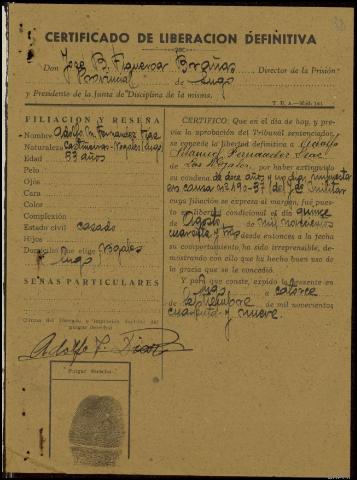 CERTIFICADO DE LIBERACION DEFINITIVA
Don José B. Figueroa Brañas
Provincial de Lugo Director de la Prisión
y Presidente de la Junta de Disciplina de la misma.
T. E. A.—Mód. 161
FILIACION Y RESEÑA
Nombre Adolfo M. Fernández Díaz
Naturaleza Castiñeiras-Nogales-Lugo
Edad 53 años
Pelo
Ojos
Cara
Color
Complexión
Estado civil casado
Hijos
Domicilio que elige Nogales
Lugo
SEÑAS PARTICULARES
Firma del liberado e impresión dactilar del
pulgar derecho:
Adolfo F. Díaz
Pulgar derecho.
CERTIFICO: Que en el día de hoy, y pre-
via aprobación del Tribunal sentenciador,
se concede la libertad definitiva a Adolfo
Fernández Díaz
de Los Nogales, por haber extinguido
su condena de doce años y un día impuesta
en causa nº 190-37 del J. Militar
cuya filiación se expresa al margen, fué pues-
to en libertad condicional el día quince
de Agosto de mil novecientos
cuarenta y
su comportamiento, ha sido irreprensible, de-
mostrando con ello que ha hecho buen uso
de la gracia que se le concedió.
Y para que conste, expido la presente en
Lugo a catorce
de septiembre de mil novecientos
cuarenta y nueve.